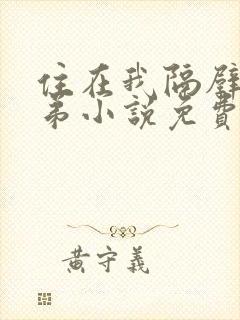 住在我隔壁
弟小說免費
黃守義